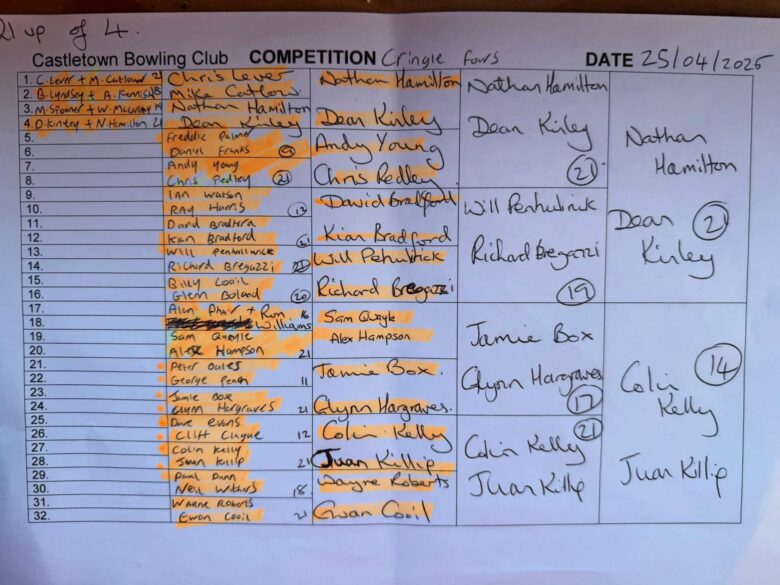 21 up of 4.
Castletown Bowling Club COMPETITION Cringle fours DATE 25/04/2025
1. C. Lever + M. Catlow 21
2. B. Lyndsey + A. Kennish 18
3. M. Spooner + W. McCarthy 19
4. D. Kinley + N. Hamilton 21
5.
6.
7.
8.
9.
10.
11.
12.
13.
14.
15.
16.
17.
18.
19.
20.
21.
22.
23.
24.
25.
26.
27.
28.
29.
30.
31.
32.
Chris Lever
Mike Catlow
Nathan Hamilton
Dean Kinley
Freddie Palma
Daniel Franks
Andy Young
Chris Pedley 21
Ian Watson
Ray Harris 13
David Bradford
Kian Bradford
Will Penhallurick
Richard Bregazzi 21
Billy Cooil
Glenn Boland 20
Alan Phair + Rum 16
Williams
Sam Quayle
Alex Hampson 21
Peter Oates
George 11
Jamie Box
Glynn Hargraves 21
Dave Evans
Cliff Clague 12
Colin Kelly
Juan Killip 21
Paul Dunn
Neil Withers 18
Wayne Roberts
Ewan Cooil 21
Nathan Hamilton
Dean Kinley
Andy Young
Chris Pedley
David Bradford
Kian Bradford
Will Pehulrick
Richard Bregazzi
Sam Quayle
Alex Hampson
Jamie Box.
Glynn Hargraves.
Colin Kelly
Juan Killip
Wayne Roberts
Ewan Cooil
Nathan Hamilton
Dean Kinley
21
Will Penhulrick
Richard Bregazzi
19
Jamie Box
Glynn Hargraves
17
21
Colin Kelly
Juan Killip
Nathan
Hamilton
Dean 21
Kinley
14
Colin
Kelly
Juan Killip